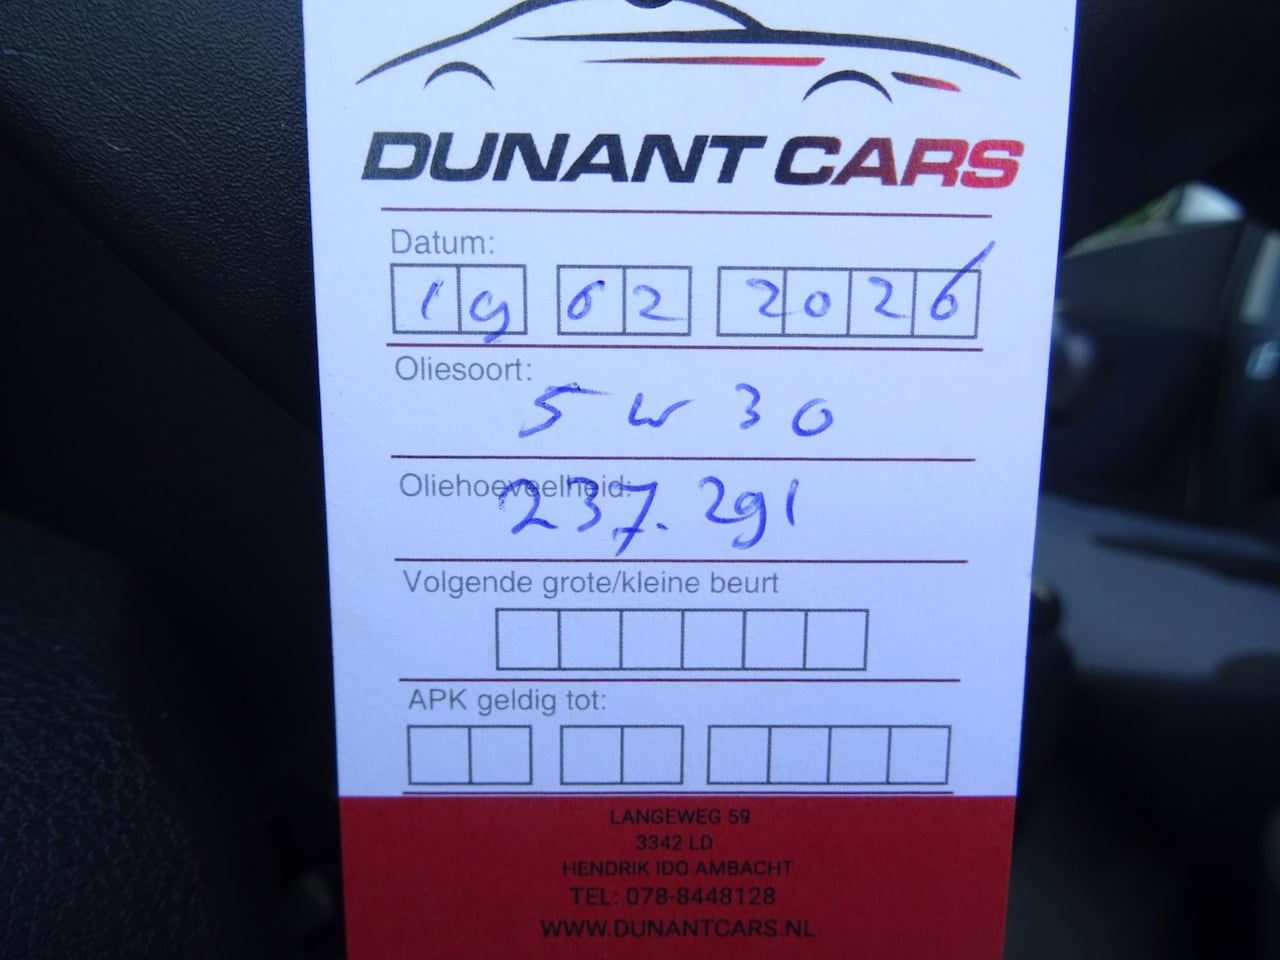 DUNANT CARS
Datum:
19 02 2026
Oliesoort:
5 w 30
Oliehoeveelheid:
237.291
Volgende grote/kleine beurt
APK geldig tot:
LANGEWEG 59
3342 LD
HENDRIK IDO AMBACHT
TEL: 078-8448128
WWW.DUNANTCARS.NL